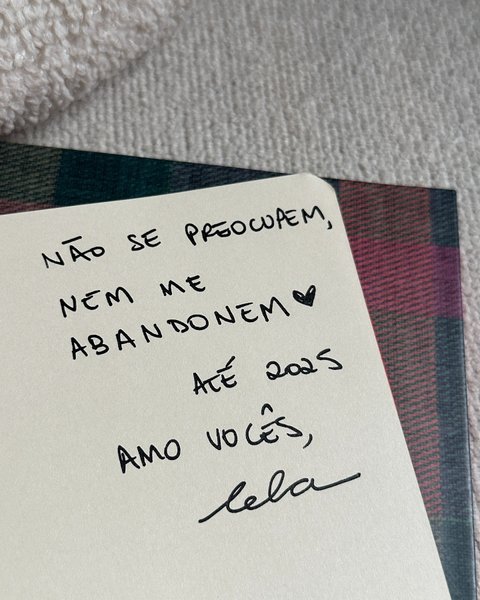 NÃO SE PREOCUPEM,
NEM ME
ABANDONEM ♥
ATÉ 2025
AMO VOCÊS,
lela